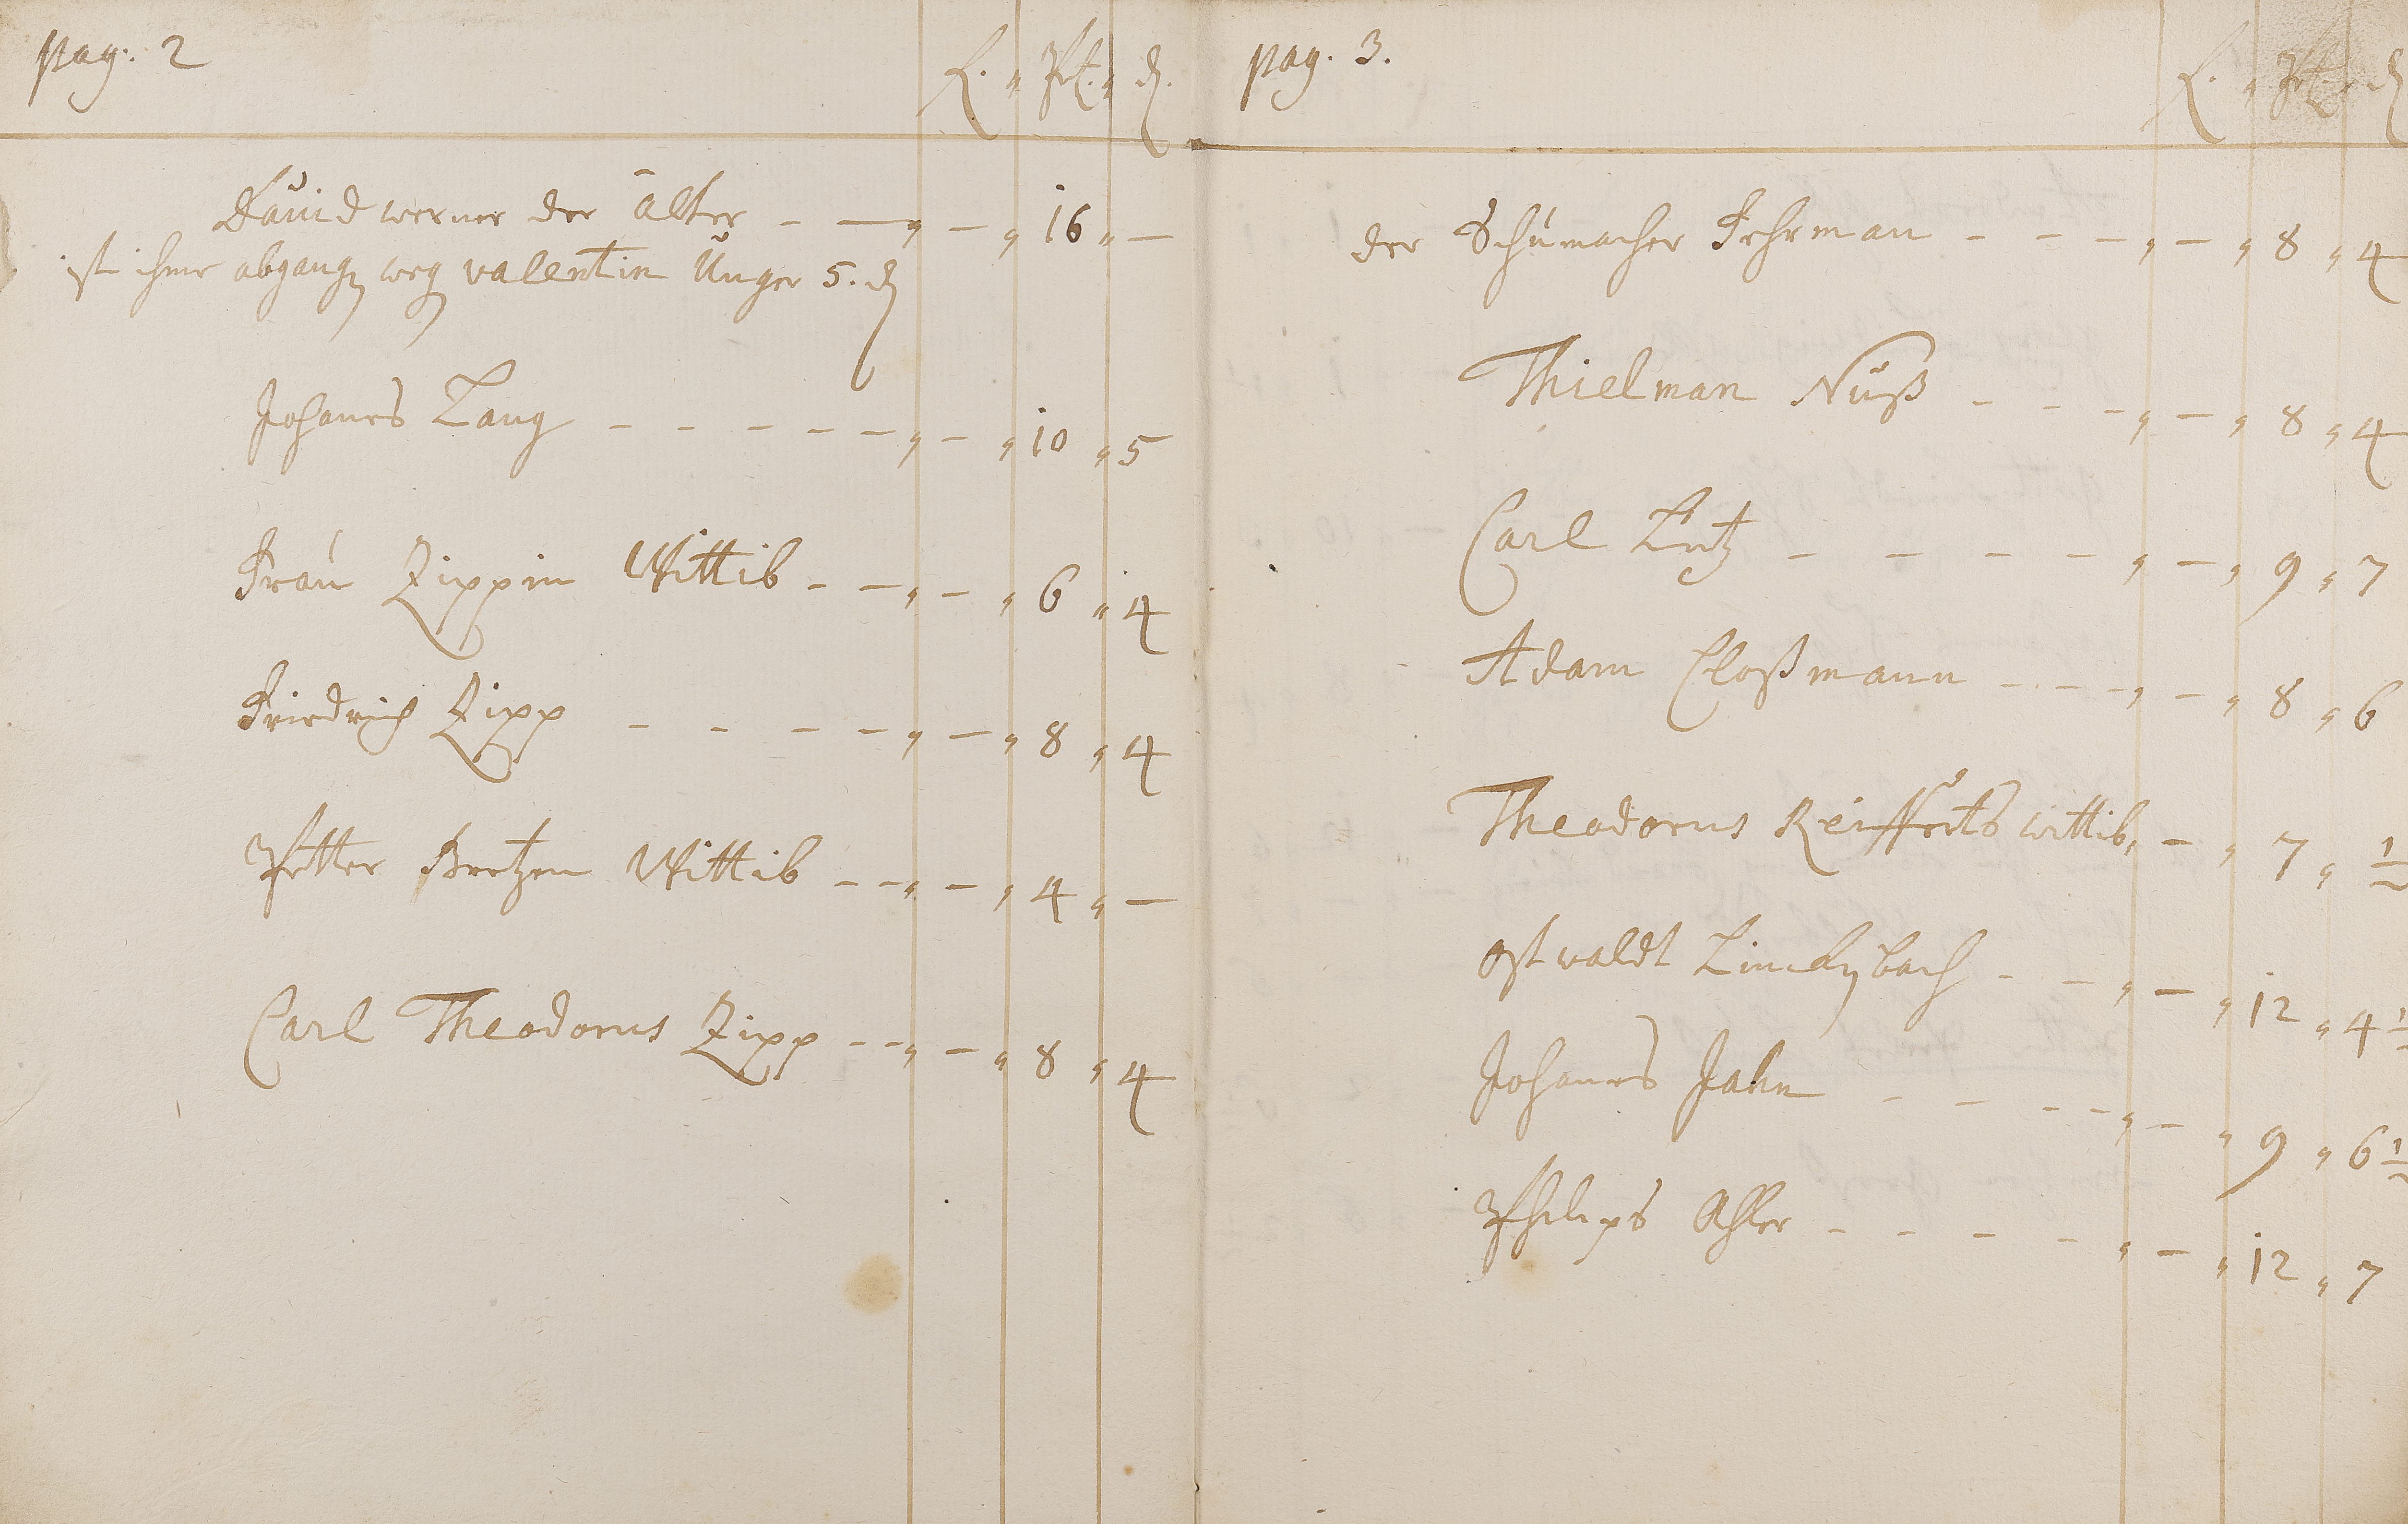 pag. 2
f. " Pf. " d.
Dauid werner der älter - — " — " 16 " —
ist ihme abgang weg valentin Unger 5. d
Johanes Lang - - - - - " — " 10 " 5
Frau Zippin Wittib - - " — " 6 " 4
Friedrich Zipp - - - - " — " 8 " 4
Petter Bretzen Wittib - - " — " 4 " —
Carl Theodorus Zipp - - " — " 8 " 4
pag. 3.
f. " Pf. " d
der Schumacher Fehrman - - - " — " 8 " 4
Thielman Nuß - - - " — " 8 " 4
Carl Lutz - - - - " — " 9 " 7
Adam Cloßmann - - - " — " 8 " 6
Theodorus Reifferts wittib, — " 7 " ½
ostwaldt Linckenbach - - " — " 12 " 4½
Johanes Jahn - - - - " — " 9 " 6½
Philips - - - - " — " 12 " 7